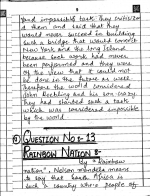 and impossible task. They criticize
d them and said that they
would never succeed in building
such a bridge that would connect
New York and the long Island
because such work had never
been performed and they were
of the view that it could not
be done in the future as well.
Therefore the world considered
John Roebling and his son crazy.
They had started such a task
which was considered impossible
by the world
QUESTION NO : 13
RAINBOW NATION :-
By "Rainbow
nation", Nelson mandela means
to say that South Africa is
such a country where people of